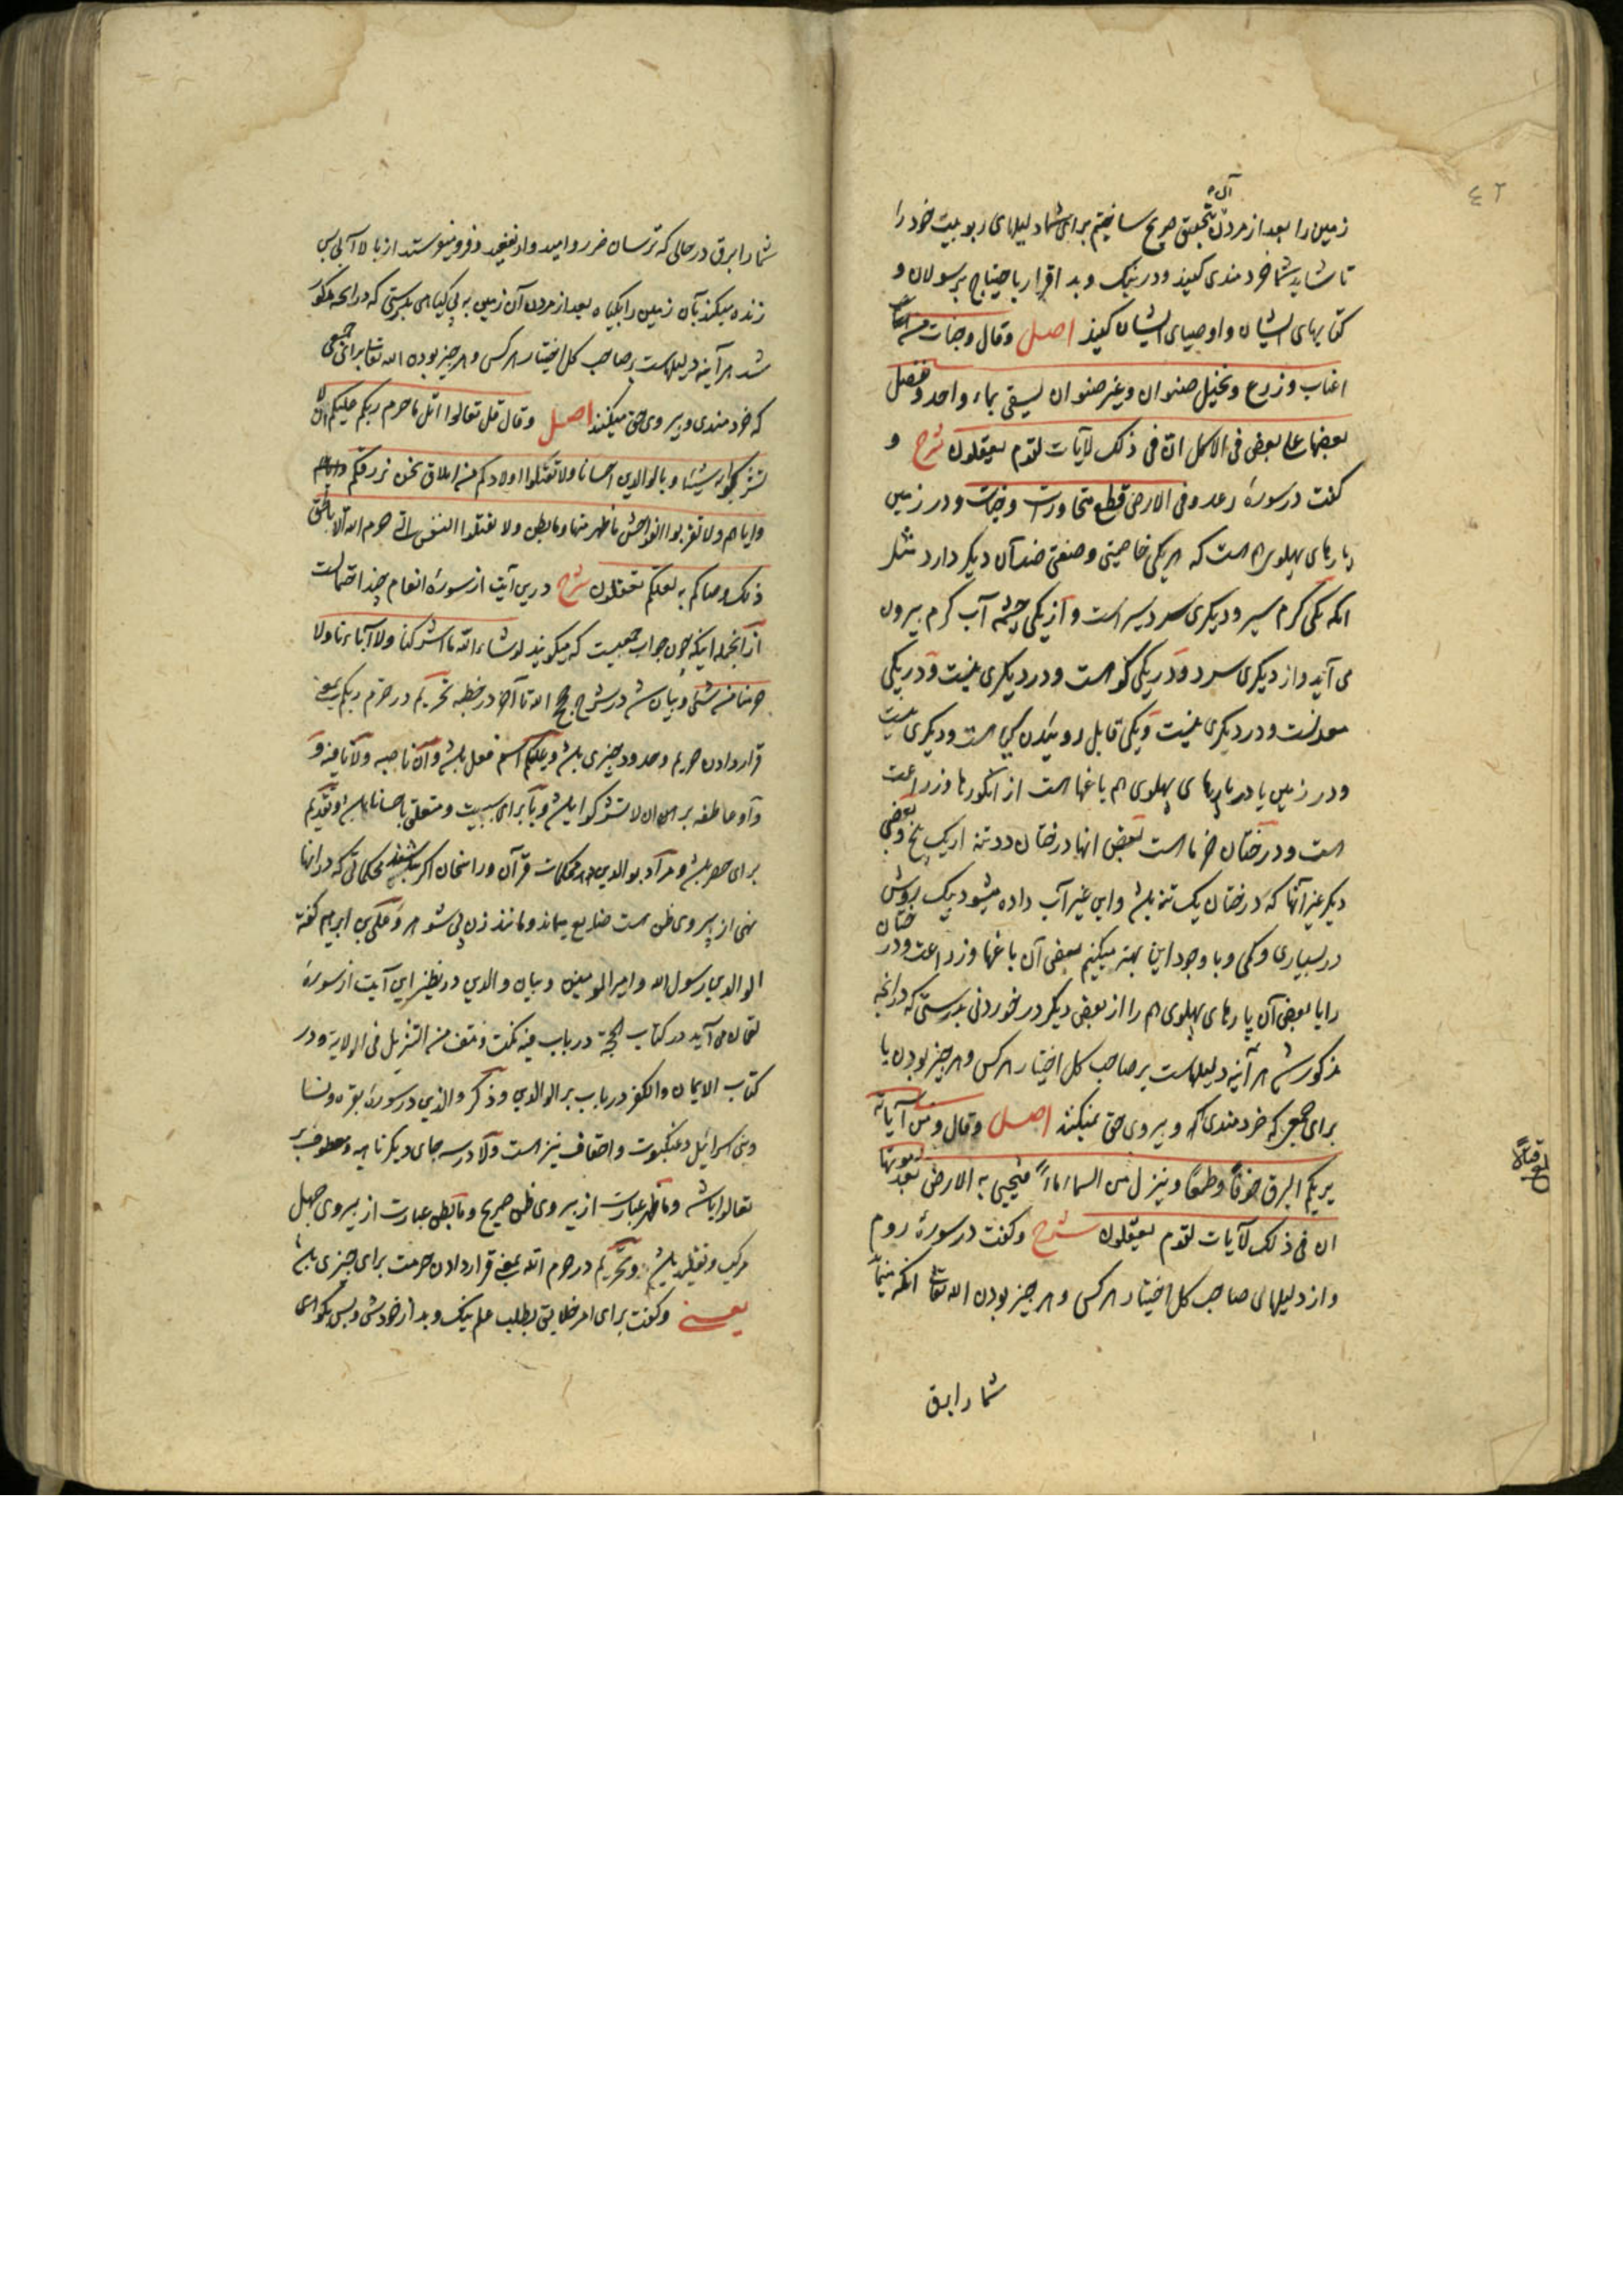 ٤٢
آن
زمین را بعد از مردن بتحقیق صریح ساختیم برای شما دلیلهای ربوبیت خود را
تا شاید شما خردمندی کنید و در نیک و بد اقرار باحتیاج برسولان و
کتابهای ایشان و اوصیای ایشان کنید اصل وقال وجنات من
اعناب وزرع ونخیل صنوان وغیر صنوان یسقی بماء واحد ونفضل
بعضها علی بعض فی الاکل ان فی ذلک لآیات لقوم یعقلون شرح و
گفت در سورهٔ رعد وفی الارض قطع متجاورات وجنات و در زمین
پارهای پهلوی هم است که هر یکی خاصیتی و صفتی ضد آن دیگر دارد مثل
انکه یکی گرم سیر و دیگری سردسیر است و از یکی چشمه آب گرم بیرون
می آید و از دیگری سرد و در یکی کوه است و در دیگری نیست و در یکی
معدنست و در دیگری نیست و یکی قابل روئیدن است و دیگری نیست
و در زمین یا در پارهای پهلوی هم باغها است از انگورها و زراعت
است و درختان خرما است بعض انها درختان دو تنه از یک بیخ و بعضی
دیگر غیر آنها که درختان یک تنه باشد و این غیر آب داده میشود بیک روش
در بسیاری و کمی و با وجود این بهتر میکنیم بعض آن باغها و زراعت و درختان
را یا بعض آن پارهای پهلوی هم را از بعض دیگر در خوردنی بدرستی که در آنچه
مذکور شد هر آینه دلیلهاست بر صاحب کل اختیار هر کس و هر چیز بودن یا
برای جمعی که خردمندی و پیروی حق میکنند اصل وقال ومن آیاته
یریکم البرق خوفا وطمعا وینزل من السماء ماء فیحیی به الارض بعد موتها
ان فی ذلک لآیات لقوم یعقلون شرح و گفت در سورهٔ روم
و از دلیلهای صاحب کل اختیار هر کس و هر چیز بودن الله تعالی انکه
شما را برق
شما را برق در حالی که ترسان ضرر و امیدوار نفعید و فرو میفرستد از بالا آبی پس
زنده میکند بآن زمین را بگیاه بعد از مردن آن زمین به بی گیاهی بدرستی که در آنچه مذکور
شد هر آینه دلیلهاست بر صاحب کل اختیار هر کس و هر چیز بودن الله تعالی برای جمعی
که خردمندی و پیروی حق میکنند اصل وقال قل تعالوا اتل ما حرم ربکم علیکم ان لا
تشرکوا به شیئا وبالوالدین احسانا ولا تقتلوا اولادکم من املاق نحن نرزقکم
وایاهم ولا تقربوا الفواحش ما ظهر منها وما بطن ولا تقتلوا النفس التی حرم الله الا بالحق
ذلکم وصاکم به لعلکم تعقلون شرح درین آیت از سورهٔ انعام چند احتمالست
از آنجمله اینکه چون جواب جمعیست که میگویند لو شاء الله ما اشرکنا ولا آباءنا ولا
حرمنا من شئ و بیان شد در شرح آخر خطبه تحریم در حرم ربکم بمعنی
قرار دادن حریم و حدود چیزی باشد و علیکم اسم فعل باشد و ان ناصبه و لا نافیه و
و او عاطفه بر ان لا تشرکوا باشد و با برای سببیت و متعلق باحسانا باشد و تقدیم
برای حصر باشد و مراد بوالدین محکمات قرآن و راسخان محکماتی که در انها
نهی از پیروی ظن است ضایع میماند و مانند زن بی شوهر و علی بن ابراهیم گفته
الوالدین رسول الله وامیر المومنین و بیان والدین در نظیر این آیت از سورهٔ
لقمان می آید در کتاب الحجة در باب فیه نکت ونتف من التنزیل فی الولایة و در
کتاب الایمان والکفر در باب بر الوالدین و ذکر والدین در سورهٔ بقره و نسا
و بنی اسرائیل و عنکبوت و احقاف نیز است و لا در سه جای دیگر ناهیه و معطوف بر
تعالوا باشد و ما ظهر عبارت از پیروی ظن صریح و ما بطن عبارت از پیروی جهل
مرکب و تقلید باشد و تحریم در حرم الله بمعنی قرار دادن حرمت برای چیزی باشد
یعنی و گفت برای امر خلایق بطلب علم نیک و بد از خودش و بس